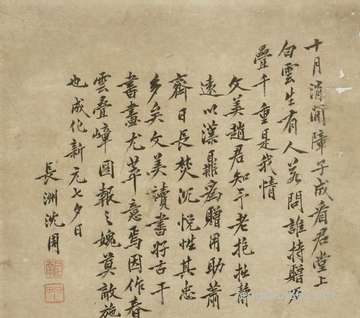 十月涓涓障子成看君堂上
白雲生有人若問誰持贈萬
疊千重是我情
文美趙君知予老抱拙靜
遠以漢鼎為贈用助蕭
齋日長焚沉悅性其忠
多矣文美讀書好古于
書畫尤萃意焉因作春
雲疊嶂圖報之媿莫敵施
也成化新元七夕日
長洲沈周